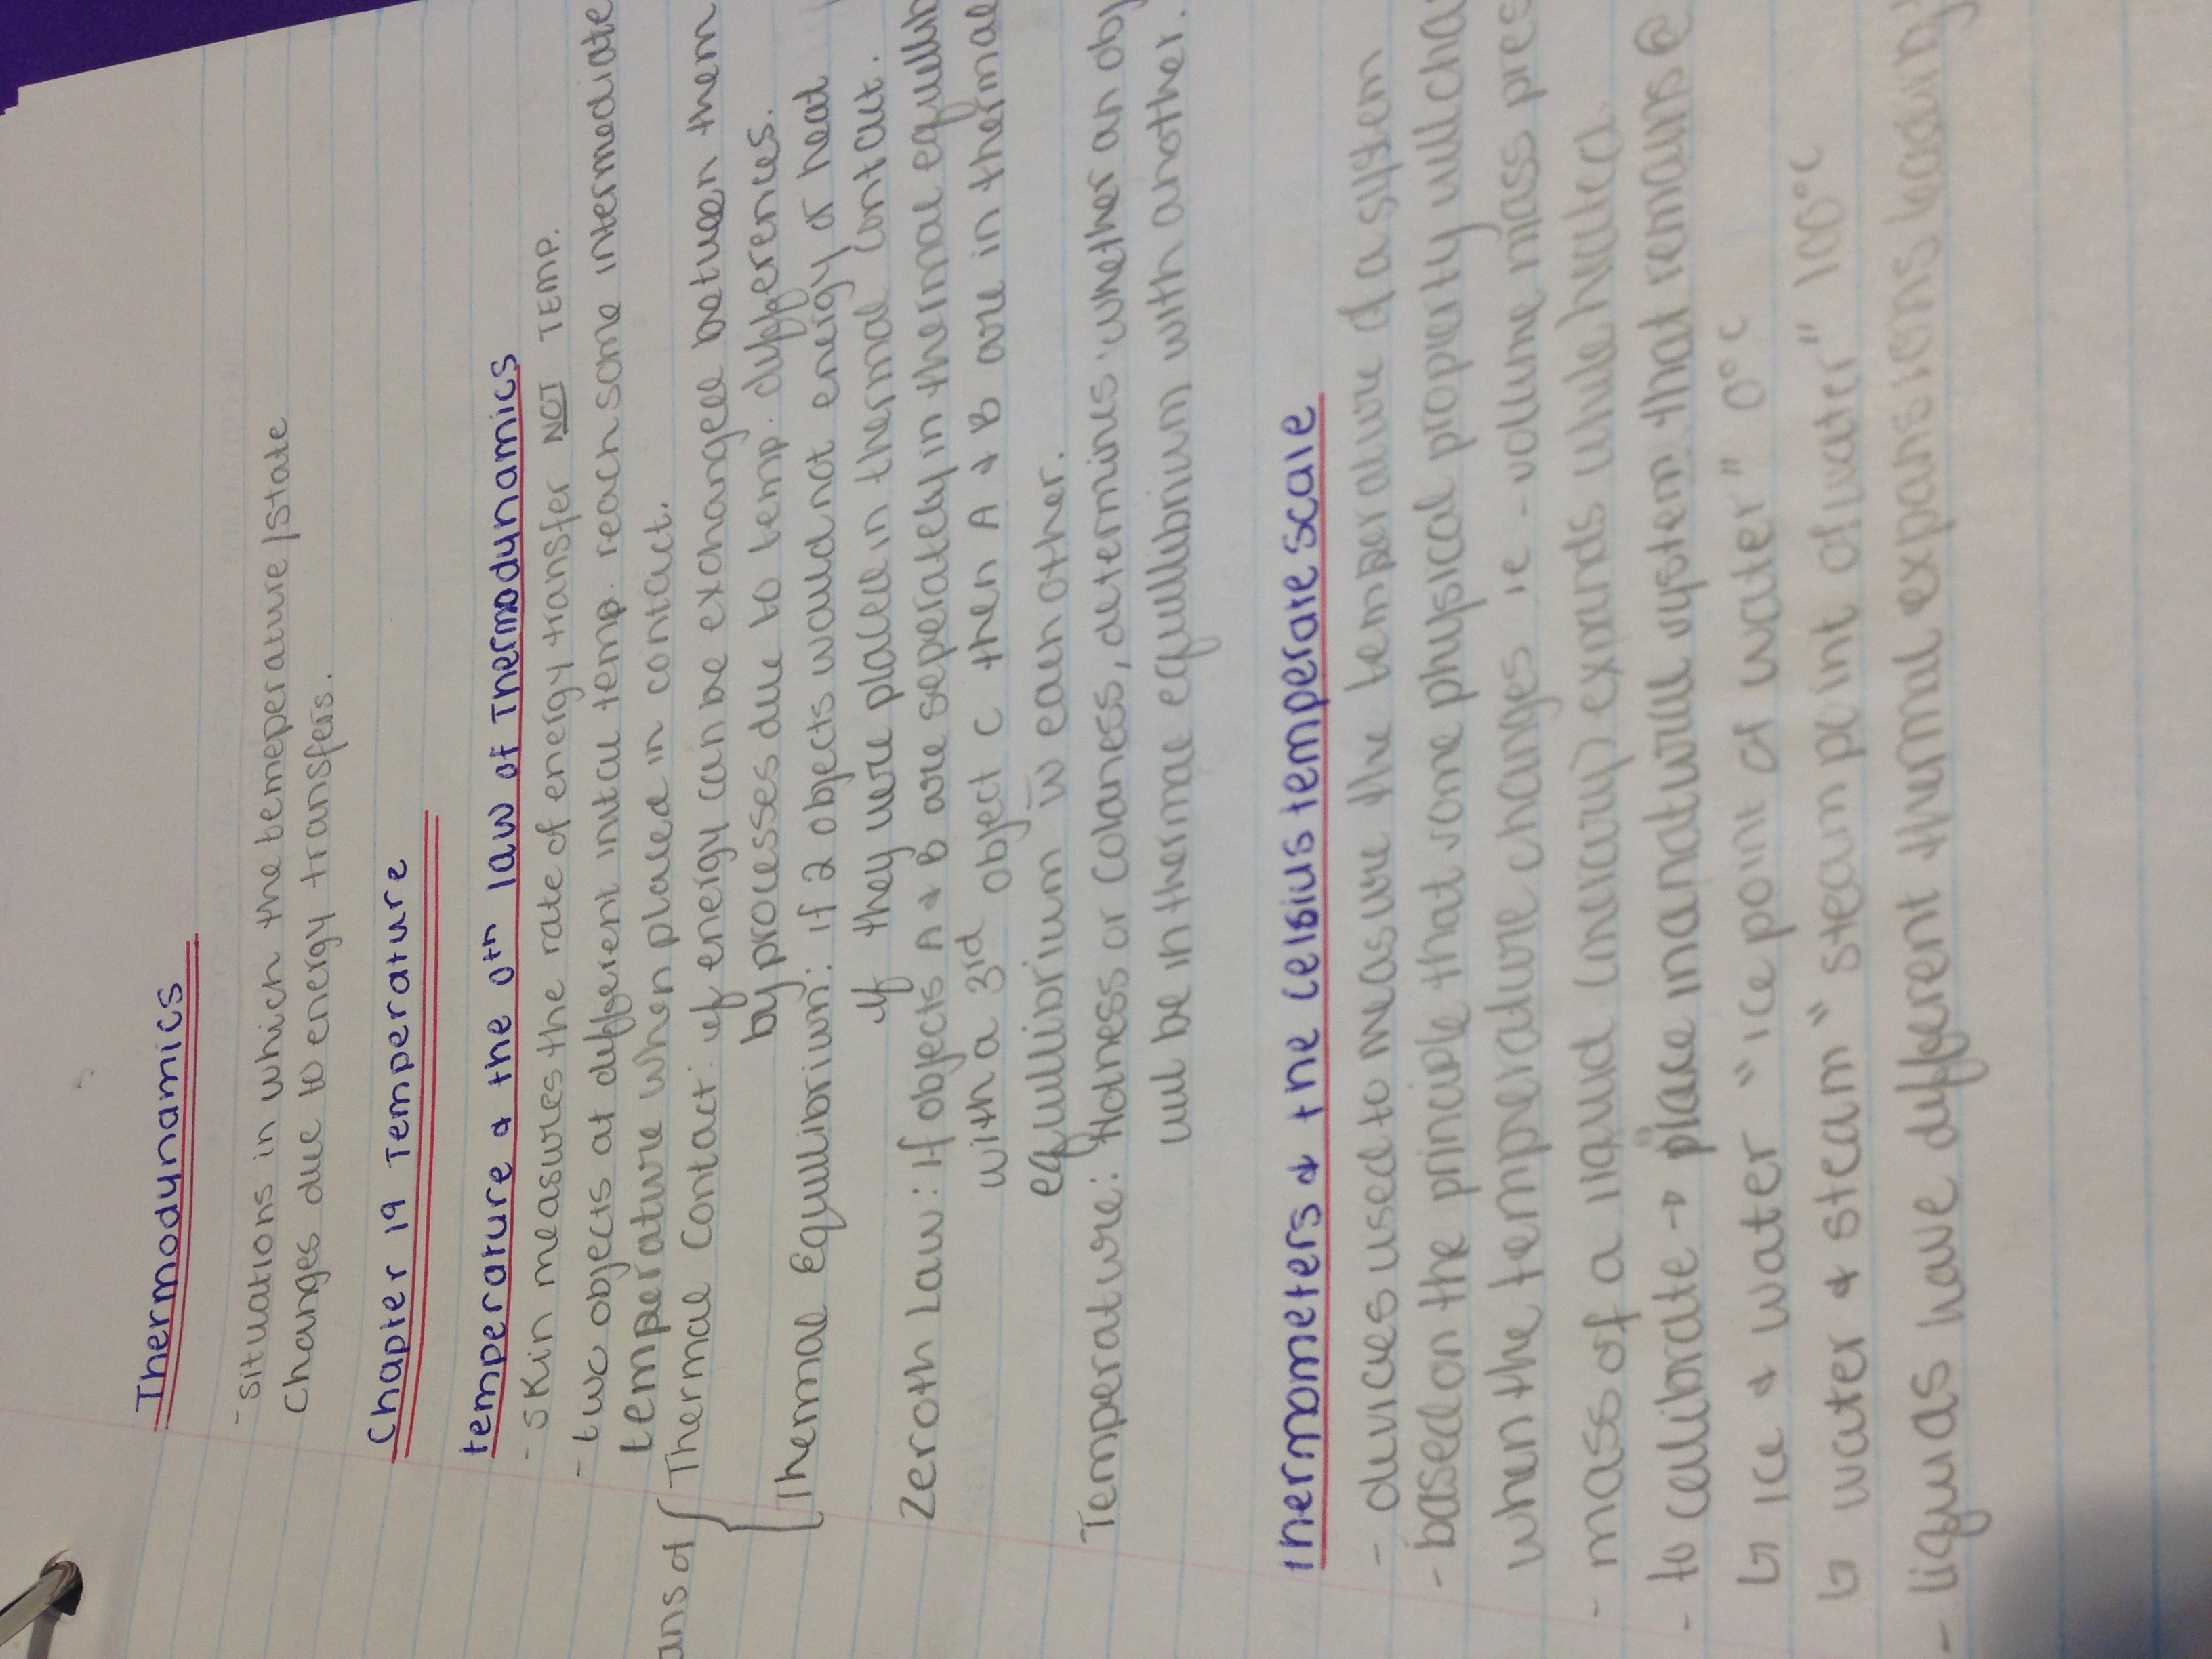 Thermodynamics
- situations in which the bemeperature/state
changes due to energy transfers.
Chapter 19 Temperature
temperature & the 0th law of Thermodynamics
- skin measures the rate of energy transfer NOT TEMP.
- two objects at different inital temp. reach some intermediate
temperature when placed in contact.
ans of { Thermal Contact: if energy can be exchanged between them
by processes due to temp. differences.
Thermal Equilibrium: if 2 objects would not energy or heat
if they were placed in thermal contact.
Zeroth Law: if objects A & B are seperately in thermal equilib
with a 3rd object C then A & B are in thermal
equilibrium w each other.
Temperature: Hotness or coldness, determines whether an obj
will be in thermal equilibrium with another.
Thermometers & the Celsius temperate scale
- devices used to measure the temperature of a system
- based on the principle that some physical property will cha
when the temperature changes ie - volume mass pres
- mass of a liquid (mercury) expands while heated
- to calibrate → place in a natural system that remains @
↳ ice & water "ice point of water" 0°C
↳ water & steam "steam point of water" 100°C
- liquids have different thermal expansions